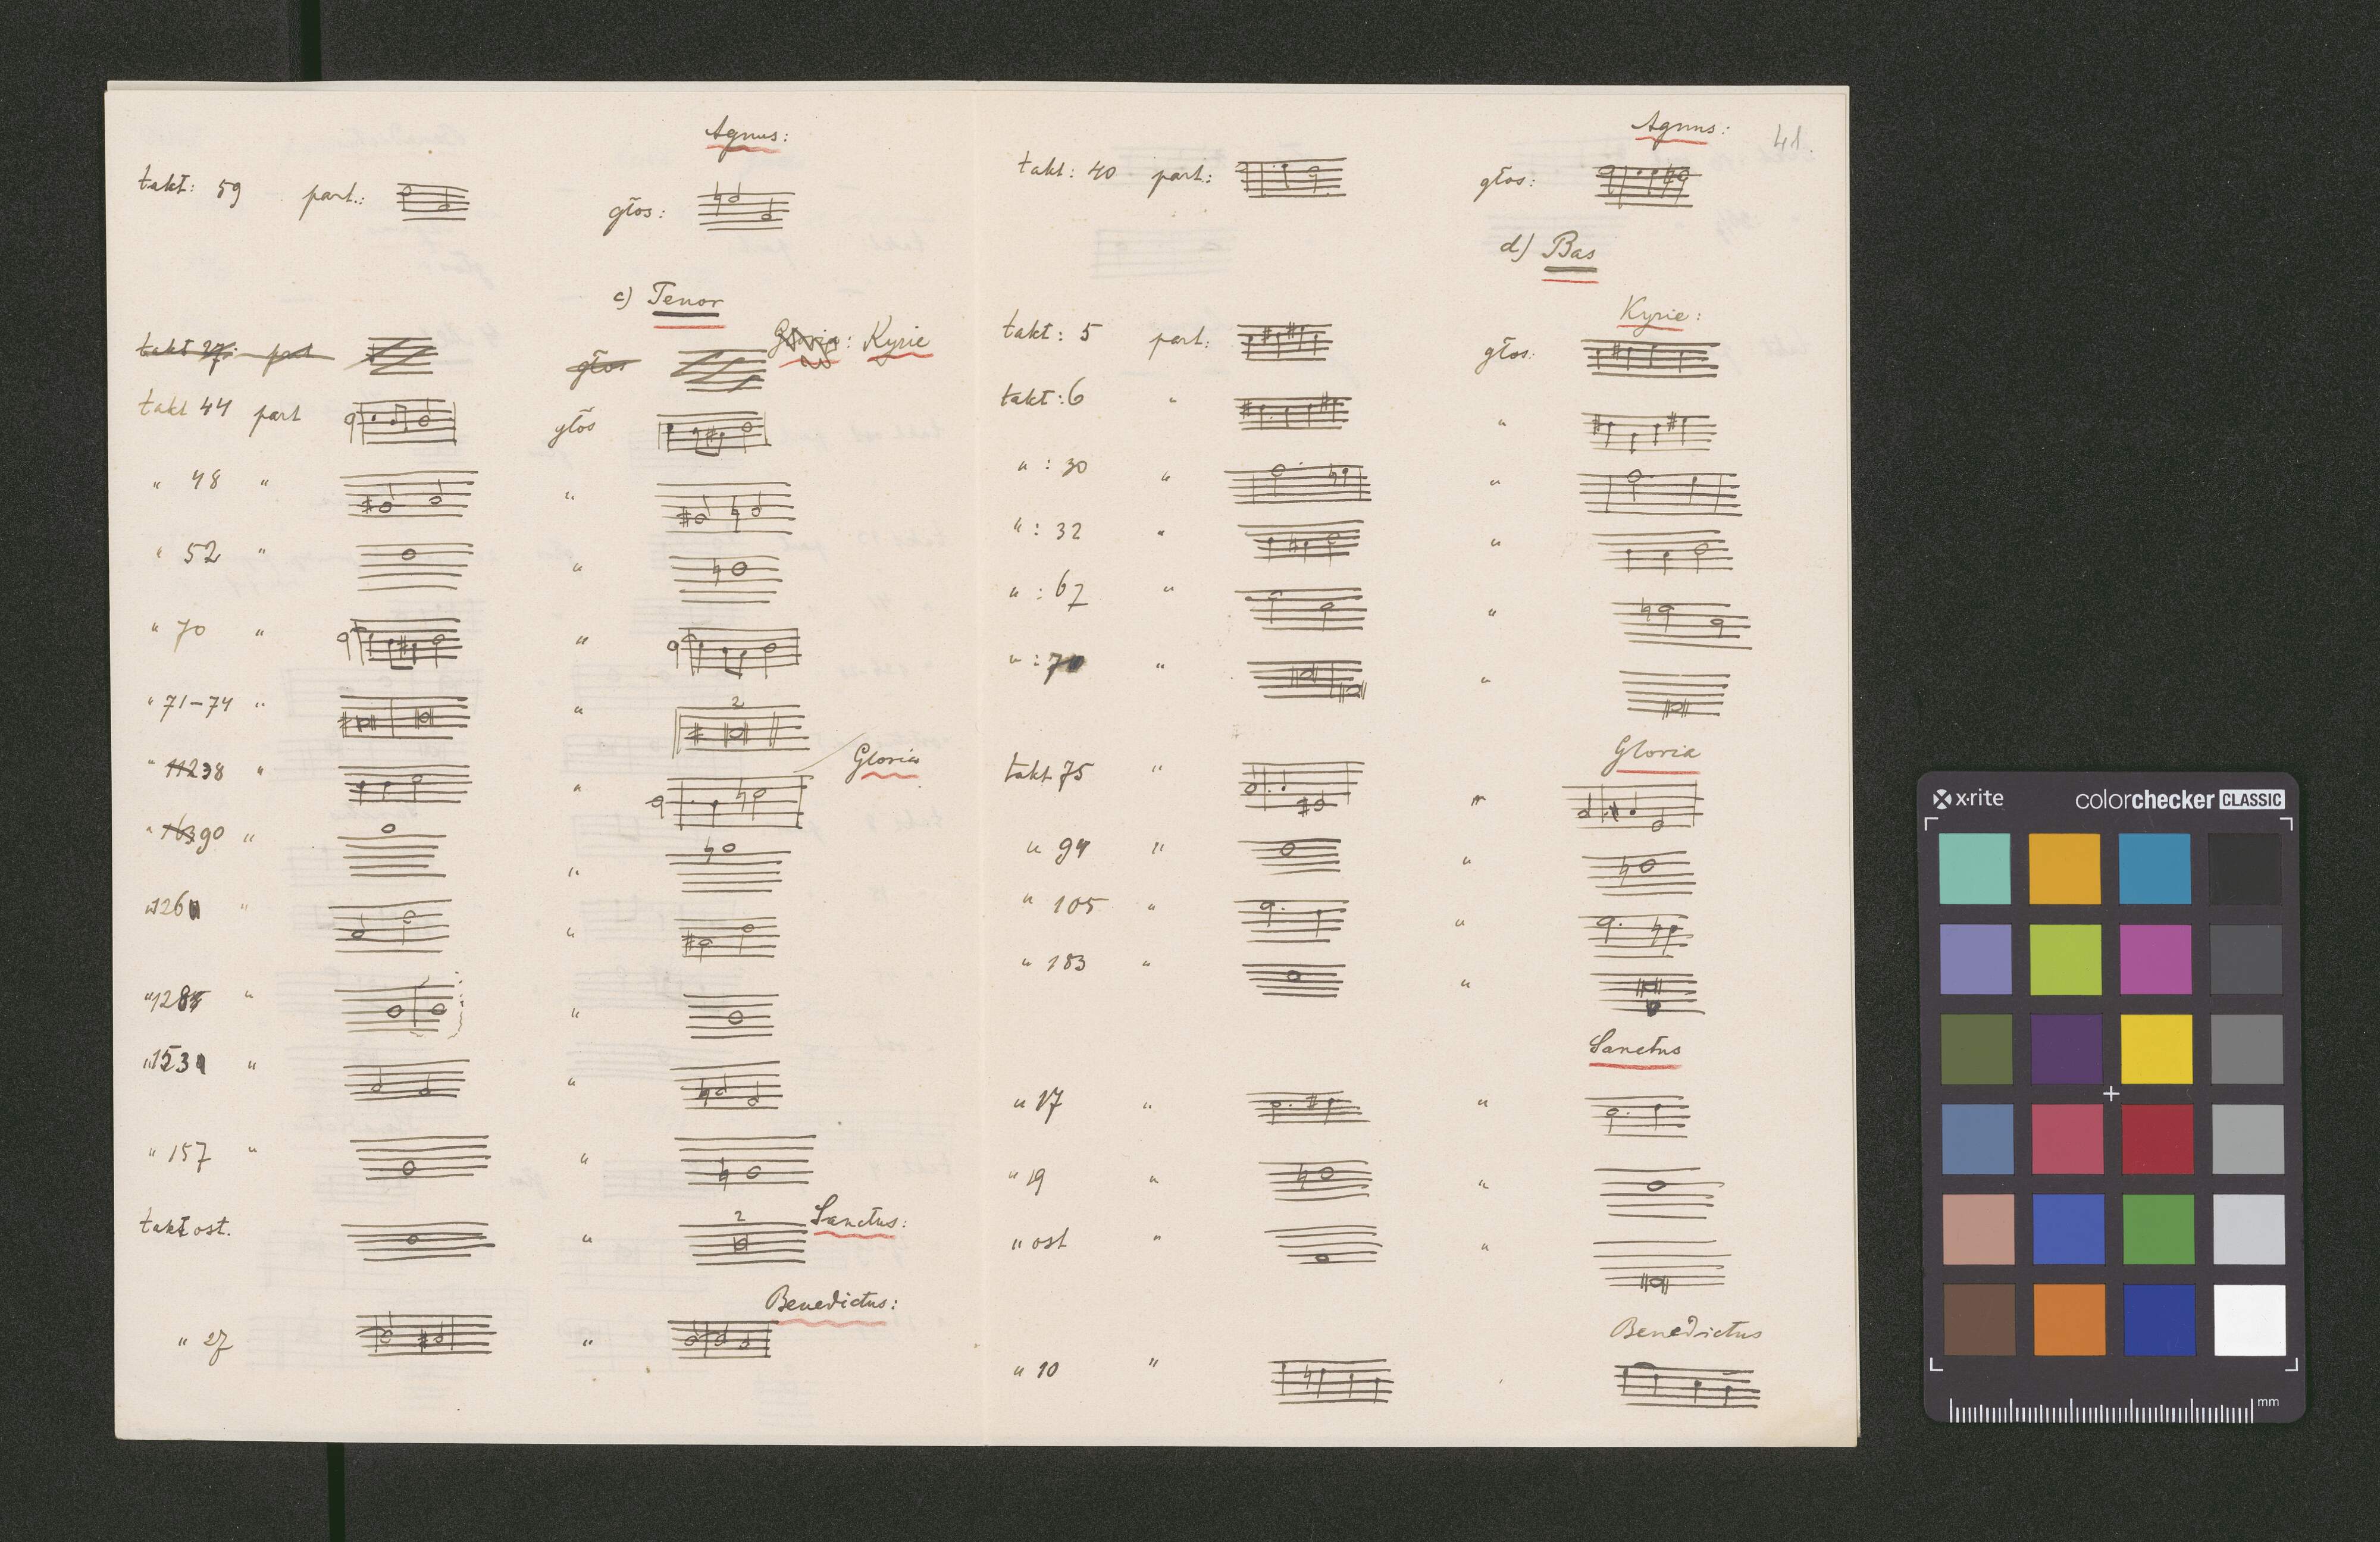 Agnus:
takt: 59 part.: głos:
c) Tenor
takt 27: part głos Gloria: Kyrie
takt 44 part głos
" 48 " "
" 52 " "
" 70 " "
" 71-74 " "
2
Gloria
" 238 " "
" 90 " "
" 126 " "
" 128 " "
" 153 " "
" 157 " "
Sanctus:
takt ost. "
2
Benedictus:
" 27 "
Agnus: 41.
takt: 40 part.: głos:
d) Bas
Kyrie:
takt: 5 part: głos:
takt: 6 " "
" : 30 " "
" : 32 " "
" : 67 " "
" : 70 " "
Gloria
takt 75 " "
" 94 " "
" 105 " "
" 183 " "
Sanctus
" 17 " "
" 19 " "
" ost " "
Benedictus
" 10 "
x-rite colorchecker CLASSIC
mm